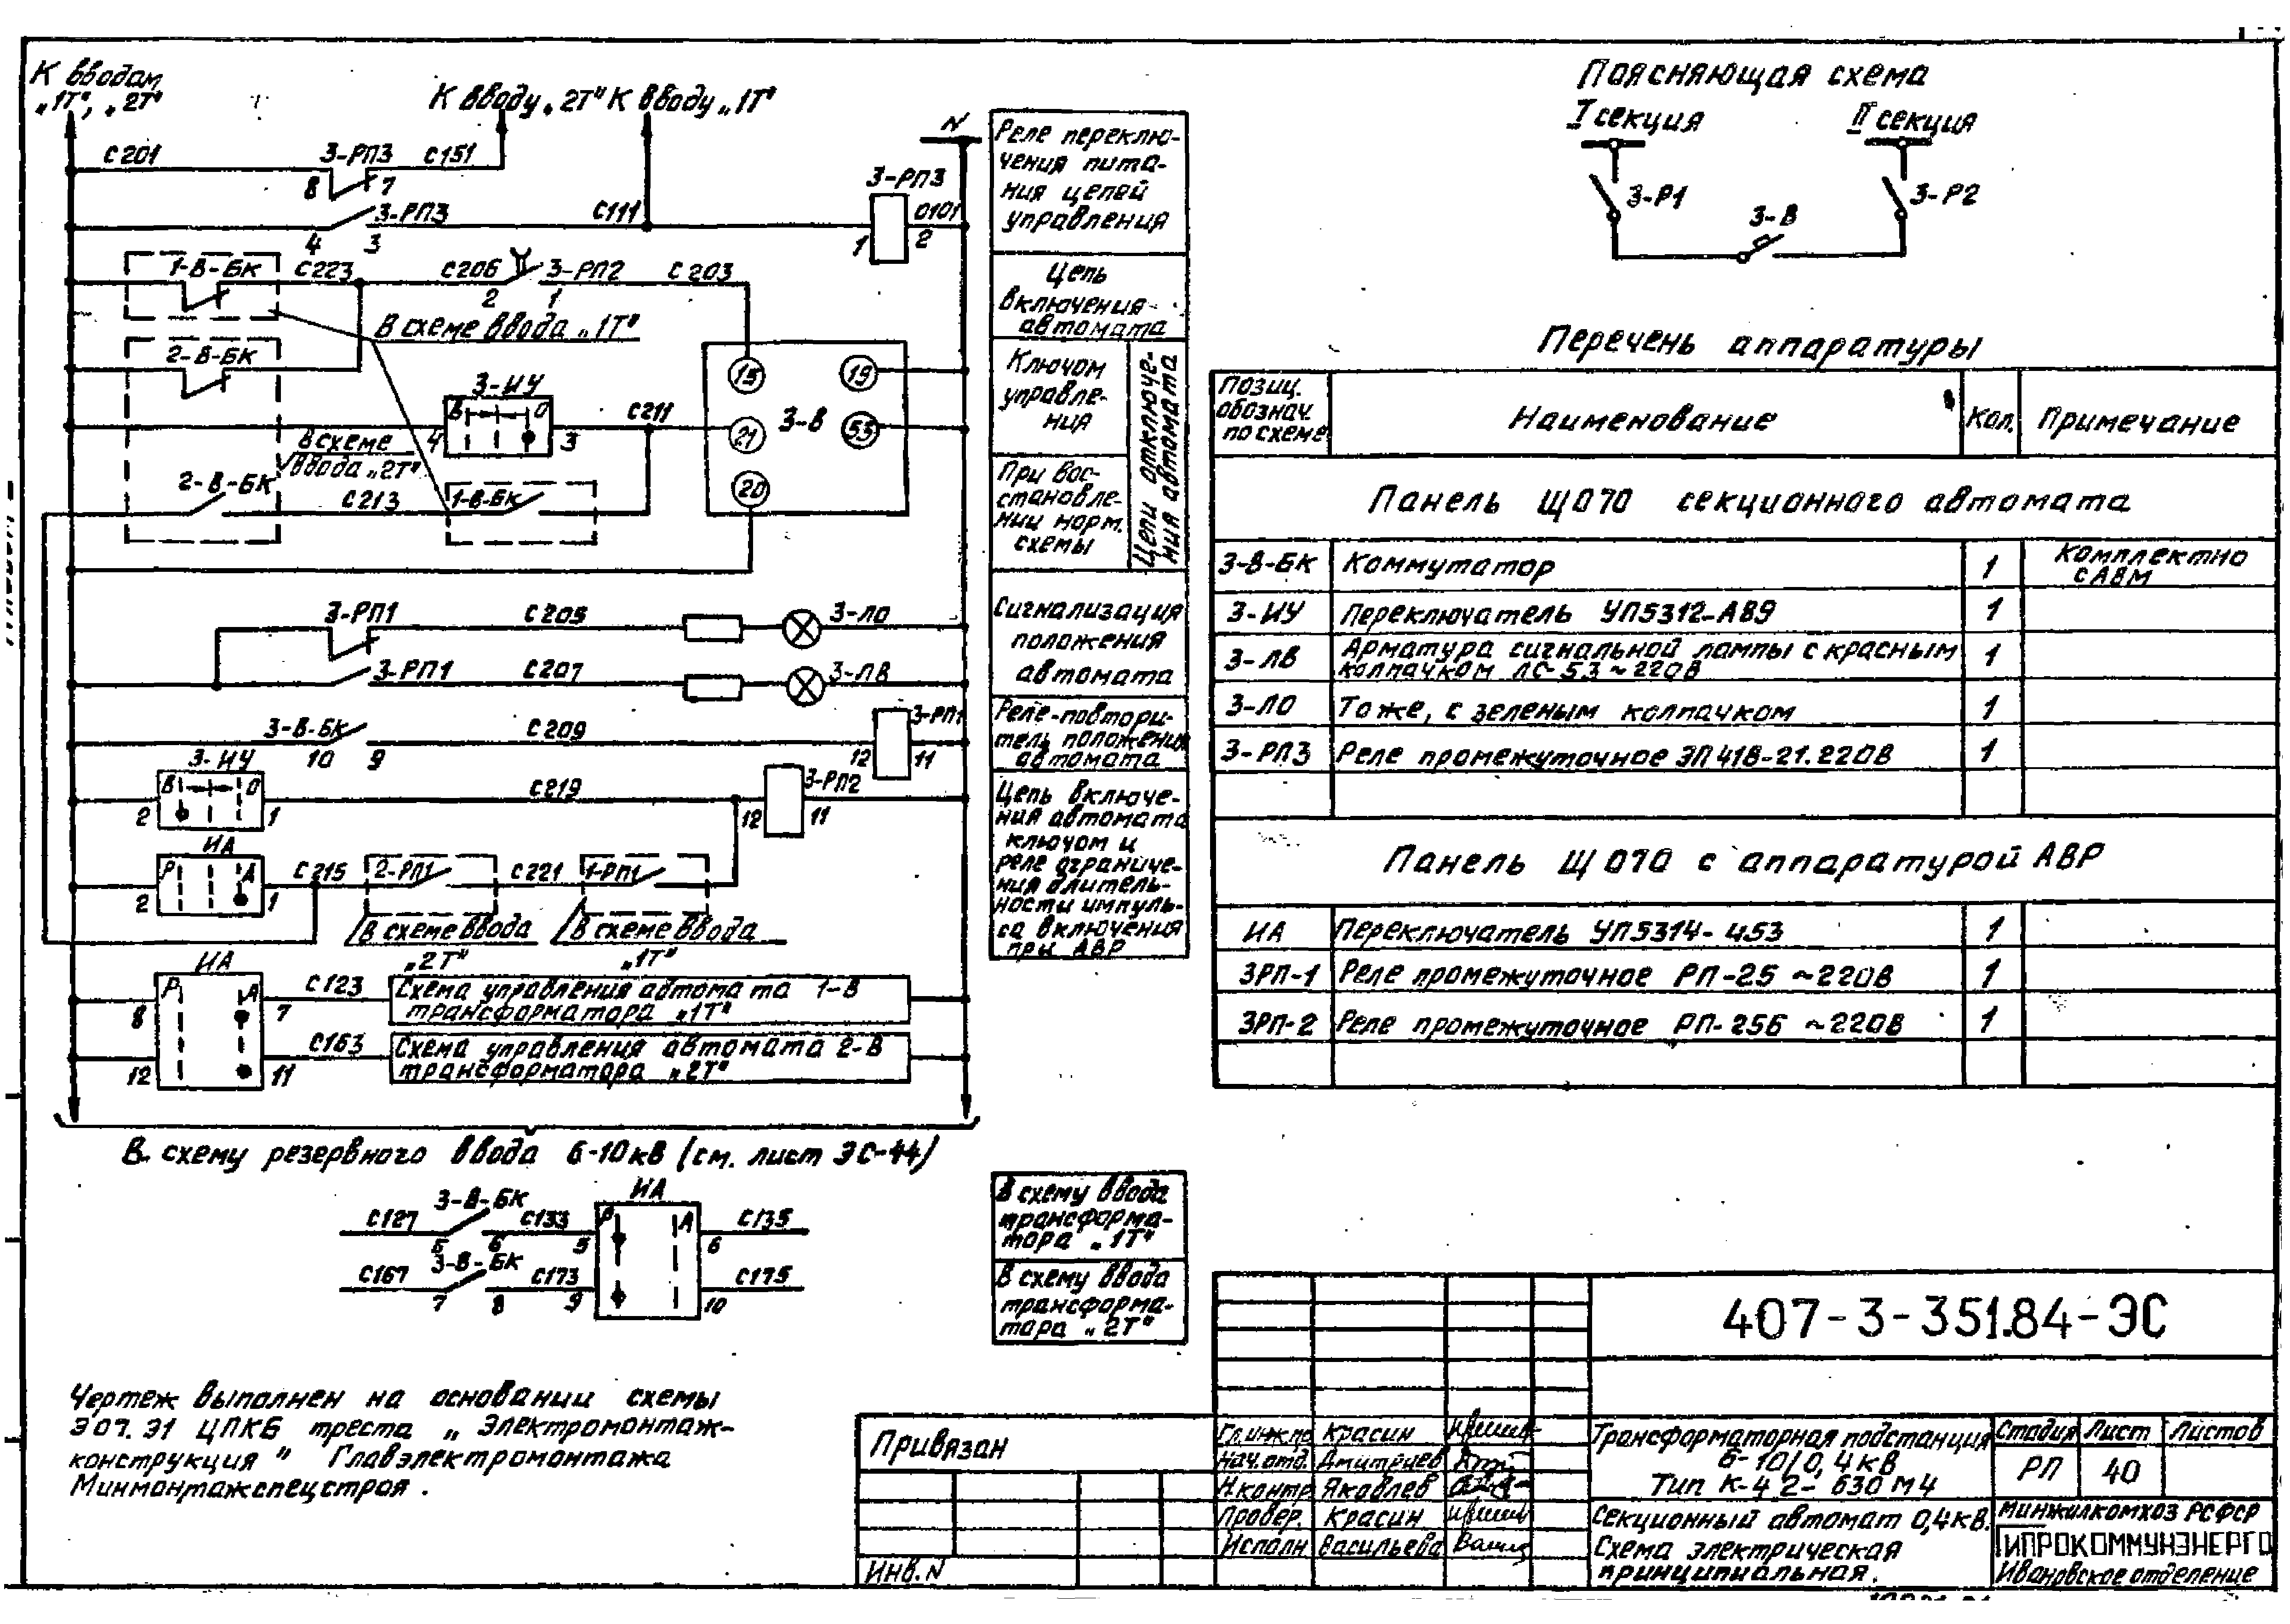 К вводам
„1Т", „2Т"
К вводу „2Т" К вводу „1Т"
N
С201
3-РП3
С151
8
7
3-РП3
С111
4
3
3-РП3
0101
1
2
1-В-БК
С223
С206
3-РП2
С203
2
1
В схеме ввода „1Т"
2-В-БК
3-ИУ
В
О
С211
4
3
В схеме
ввода „2Т"
2-В-БК
С213
1-В-БК
15
19
21
3-В
53
20
3-РП1
С205
3-ЛО
3-РП1
С207
3-ЛВ
3-В-БК
С209
3-РП1
10
9
12
11
3-ИУ
В
О
2
1
С219
3-РП2
12
11
ИА
Р
А
2
1
С215
2-РП1
С221
1-РП1
В схеме ввода
„2Т"
В схеме ввода
„1Т"
ИА
Р
А
8
7
С123
Схема управления автомата 1-В
трансформатора „1Т"
12
11
С163
Схема управления автомата 2-В
трансформатора „2Т"
В схему резервного ввода 6-10кВ (см. лист ЭС-44)
С127
3-В-БК
С133
ИА
Р
А
С135
5
6
5
6
С167
3-В-БК
С173
С175
7
8
9
10
Реле переклю-
чения пита-
ния цепей
управления
Цепь
включения
автомата
Ключом
управле-
ния
При вос-
становле-
нии норм.
схемы
Цепи отключе-
ния автомата
Сигнализация
положения
автомата
Реле-повтори-
тель положения
автомата
Цепь включе-
ния автомата
ключом и
реле ограниче-
ния длитель-
ности импуль-
са включения
при АВР
В схему ввода
трансформа-
тора „1Т"
В схему ввода
трансформа-
тора „2Т"
Поясняющая схема
I секция
II секция
3-Р1
3-В
3-Р2
Перечень аппаратуры
Позиц.
обознач.
по схеме
Наименование
Кол.
Примечание
Панель ЩО70 секционного автомата
3-В-БК
Коммутатор
1
Комплектно
с АВМ
3-ИУ
Переключатель УП5312-АВ9
1
3-ЛВ
Арматура сигнальной лампы с красным
колпачком ЛС-53 ~220В
1
3-ЛО
То же, с зеленым колпачком
1
3-РП3
Реле промежуточное ЭП41В-21.220В
1
Панель ЩО70 с аппаратурой АВР
ИА
Переключатель УП5314-453
1
3РП-1
Реле промежуточное РП-25 ~220В
1
3РП-2
Реле промежуточное РП-256 ~220В
1
Чертеж выполнен на основании схемы
Э07.Э1 ЦПКБ треста „Электромонтаж-
конструкция" Главэлектромонтажа
Минмонтажспецстроя.
Привязан
Инв. N
Гл.инж.пр.
Красин
Нач.отд.
Дмитриев
Н.контр.
Яковлев
Провер.
Красин
Исполн.
Васильева
407-3-351.84-ЭС
Трансформаторная подстанция
6-10/0,4кВ
Тип К-42-630М4
Стадия
Лист
Листов
РП
40
Секционный автомат 0,4кВ.
Схема электрическая
принципиальная.
Минжилкомхоз РСФСР
ГИПРОКОММУНЭНЕРГО
Ивановское отделение